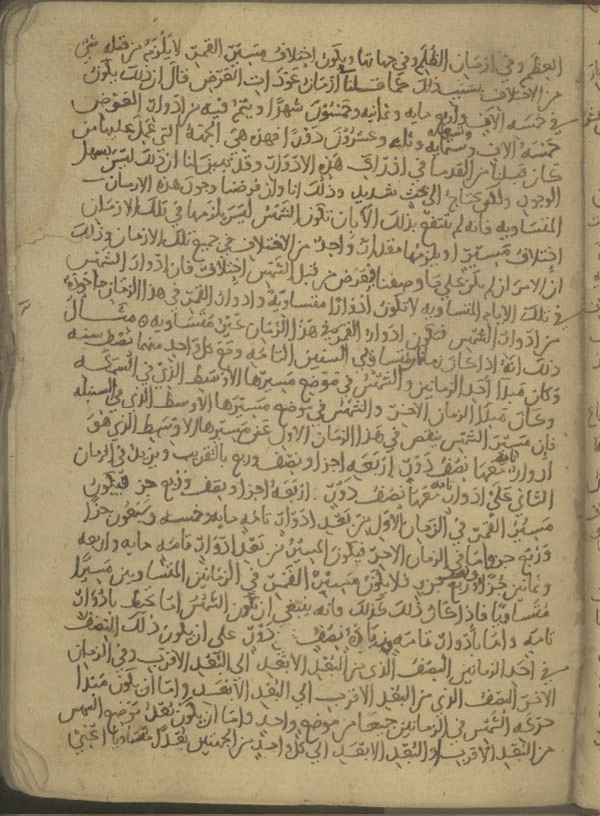 العظم وفي ازمان الظلم وفي جهاتها ويكون اختلاف مسير القمر لا يلزم من قبله شي
من الاختلاف بسبب ذلك كما قلنا ازمان عودات القمر قال ان ذلك يكون
في خمسه الاف واربع مايه وثمانيه وخمسون شهرا ويتم فيه من ادوار العرض
خمسه الاف وتسعمايه وثلثه وعشرون دورا فهذه هي الجهة التي عمل عليها من
كان قبلنا من القدما في ادراك هذه الادوار وقد يتبين لنا ان ذلك ليس بسهل
الوجود ولكن يحتاج الى بحث شديد وذلك انا وان فرضنا وجود هذه الازمان
المتساويه فانه لم ينتفع بذلك الا بان تكون الشمس ليس يلزمها في تلك الازمان
اختلاف مسير او يلزمها مقدار واحد من الاختلاف في جميع تلك الازمان وذلك
ان الامر ان لم يكن على ما وصفنا فعرض من قبل الشمس اختلاف فان ادوار الشمس
في تلك الايام المتساويه لا تكون ادوارا متساوية وادوار القمر في هذا الزمان ماخوذة
من ادوار الشمس فتكون ادوار القمر في هذا الزمان غير متساويه مثال
ذلك انه اذا كان زمانا متساويا في السنين التامه ومع كل واحد منهما نصف سنه
وكان مبدا احد الزمانين والشمس في موضع مسيرها الاوسط الذي في السمكه
وكان مبدا الزمان الاخر والشمس في موضع مسيرها الاوسط الذي في السنبله
فان مسير الشمس ينقص في هذا الزمان الاول عن مسيرها الاوسط الذي هو
ادوار تامه معها نصف دور اربعه اجزا ونصف وربع بالتقريب ويزيد في الزمان
الثاني على ادوار تامه معها نصف دور اربعه اجزا ونصف وربع جز فيكون
مسير القمر في الزمان الاول من بعد ادوار تامه مايه وخمسه وسبعون جزا
وربع جز واما في الزمان الاخر فيكون المسير من بعد ادوار تامه مايه واربعه
وثمانين جزا ونصف وربع جز فلا يكون مسير القمر في الزمانين المتساويين مسيرا
متساويا فاذا كان ذلك كذلك فانه ينبغي ان تكون الشمس اما تحيط بادوار
تامه واما بادوار تامه وزيادة نصف دور على ان يكون ذلك النصف
في احد الزمانين النصف الذي من البعد الابعد الى البعد الاقرب وفي الزمان
الاخر النصف الذي من البعد الاقرب الى البعد الابعد واما ان يكون مبدا
حركه الشمس في الزمانين جميعا من موضع واحد واما ان يكون بعد موضع الشمس
من البعد الاقرب او البعد الابعد الى كل واحد من الجهتين بعدا متساويا اعني